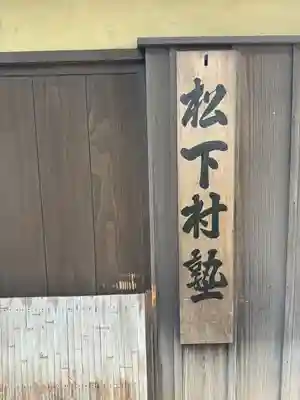 松下村塾